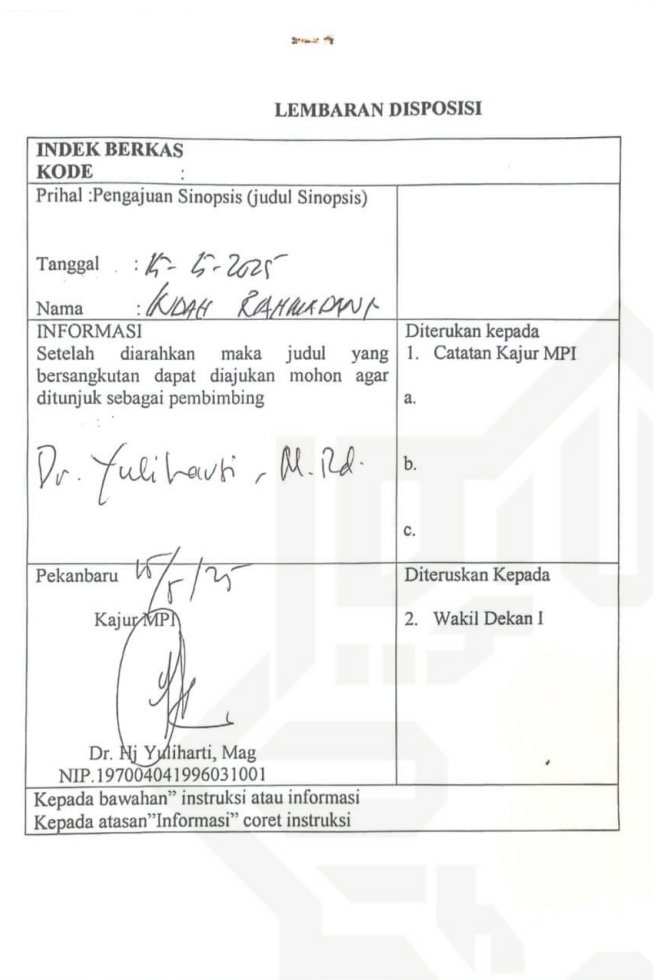 LEMBARAN DISPOSISI
INDEK BERKAS
KODE :
Prihal :Pengajuan Sinopsis (judul Sinopsis)
Tanggal : 15-5-2025
Nama : INDAH RAHMADANI
INFORMASI
Setelah diarahkan maka judul yang
bersangkutan dapat diajukan mohon agar
ditunjuk sebagai pembimbing
Dr. Yuliharti, M.Pd.
Diterukan kepada
1. Catatan Kajur MPI
a.
b.
c.
Pekanbaru 15/5/25
Kajur MPI
Dr. Hj Yuliharti, Mag
NIP.197004041996031001
Diteruskan Kepada
2. Wakil Dekan I
Kepada bawahan” instruksi atau informasi
Kepada atasan”Informasi” coret instruksi